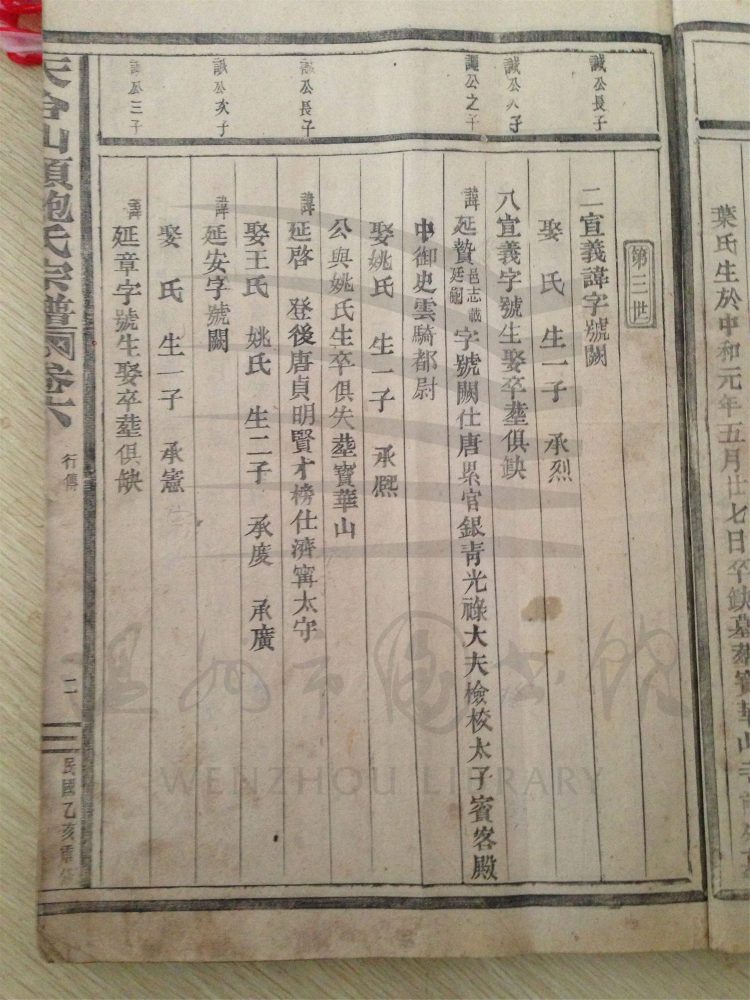 葉氏生於中和元年五月廿七日卒缺墓葬寶華山
第三世
誠公長子
二宣義諱字號闕
娶 氏 生一子 承烈
誠公次子
八宣義字號生娶卒塟俱缺
公之子
諱延贄邑志載廷嗣字號闕仕唐累官銀青光祿大夫檢校太子賓客殿
中御史雲騎都尉
娶姚氏 生一子 承熙
公與姚氏生卒俱失塟寶華山
公長子
諱延啓 登後唐貞明賢才榜仕濟甯太守
娶王氏 姚氏 生二子 承慶 承廣
誠公次子
諱延安字號闕
娶 氏 生一子 承憲
公三子
諱延章字號生娶卒塟俱缺
山頭鮑氏宗譜 卷六 行傳 二 民國乙亥重修
溫州市圖書館
WENZHOU LIBRARY